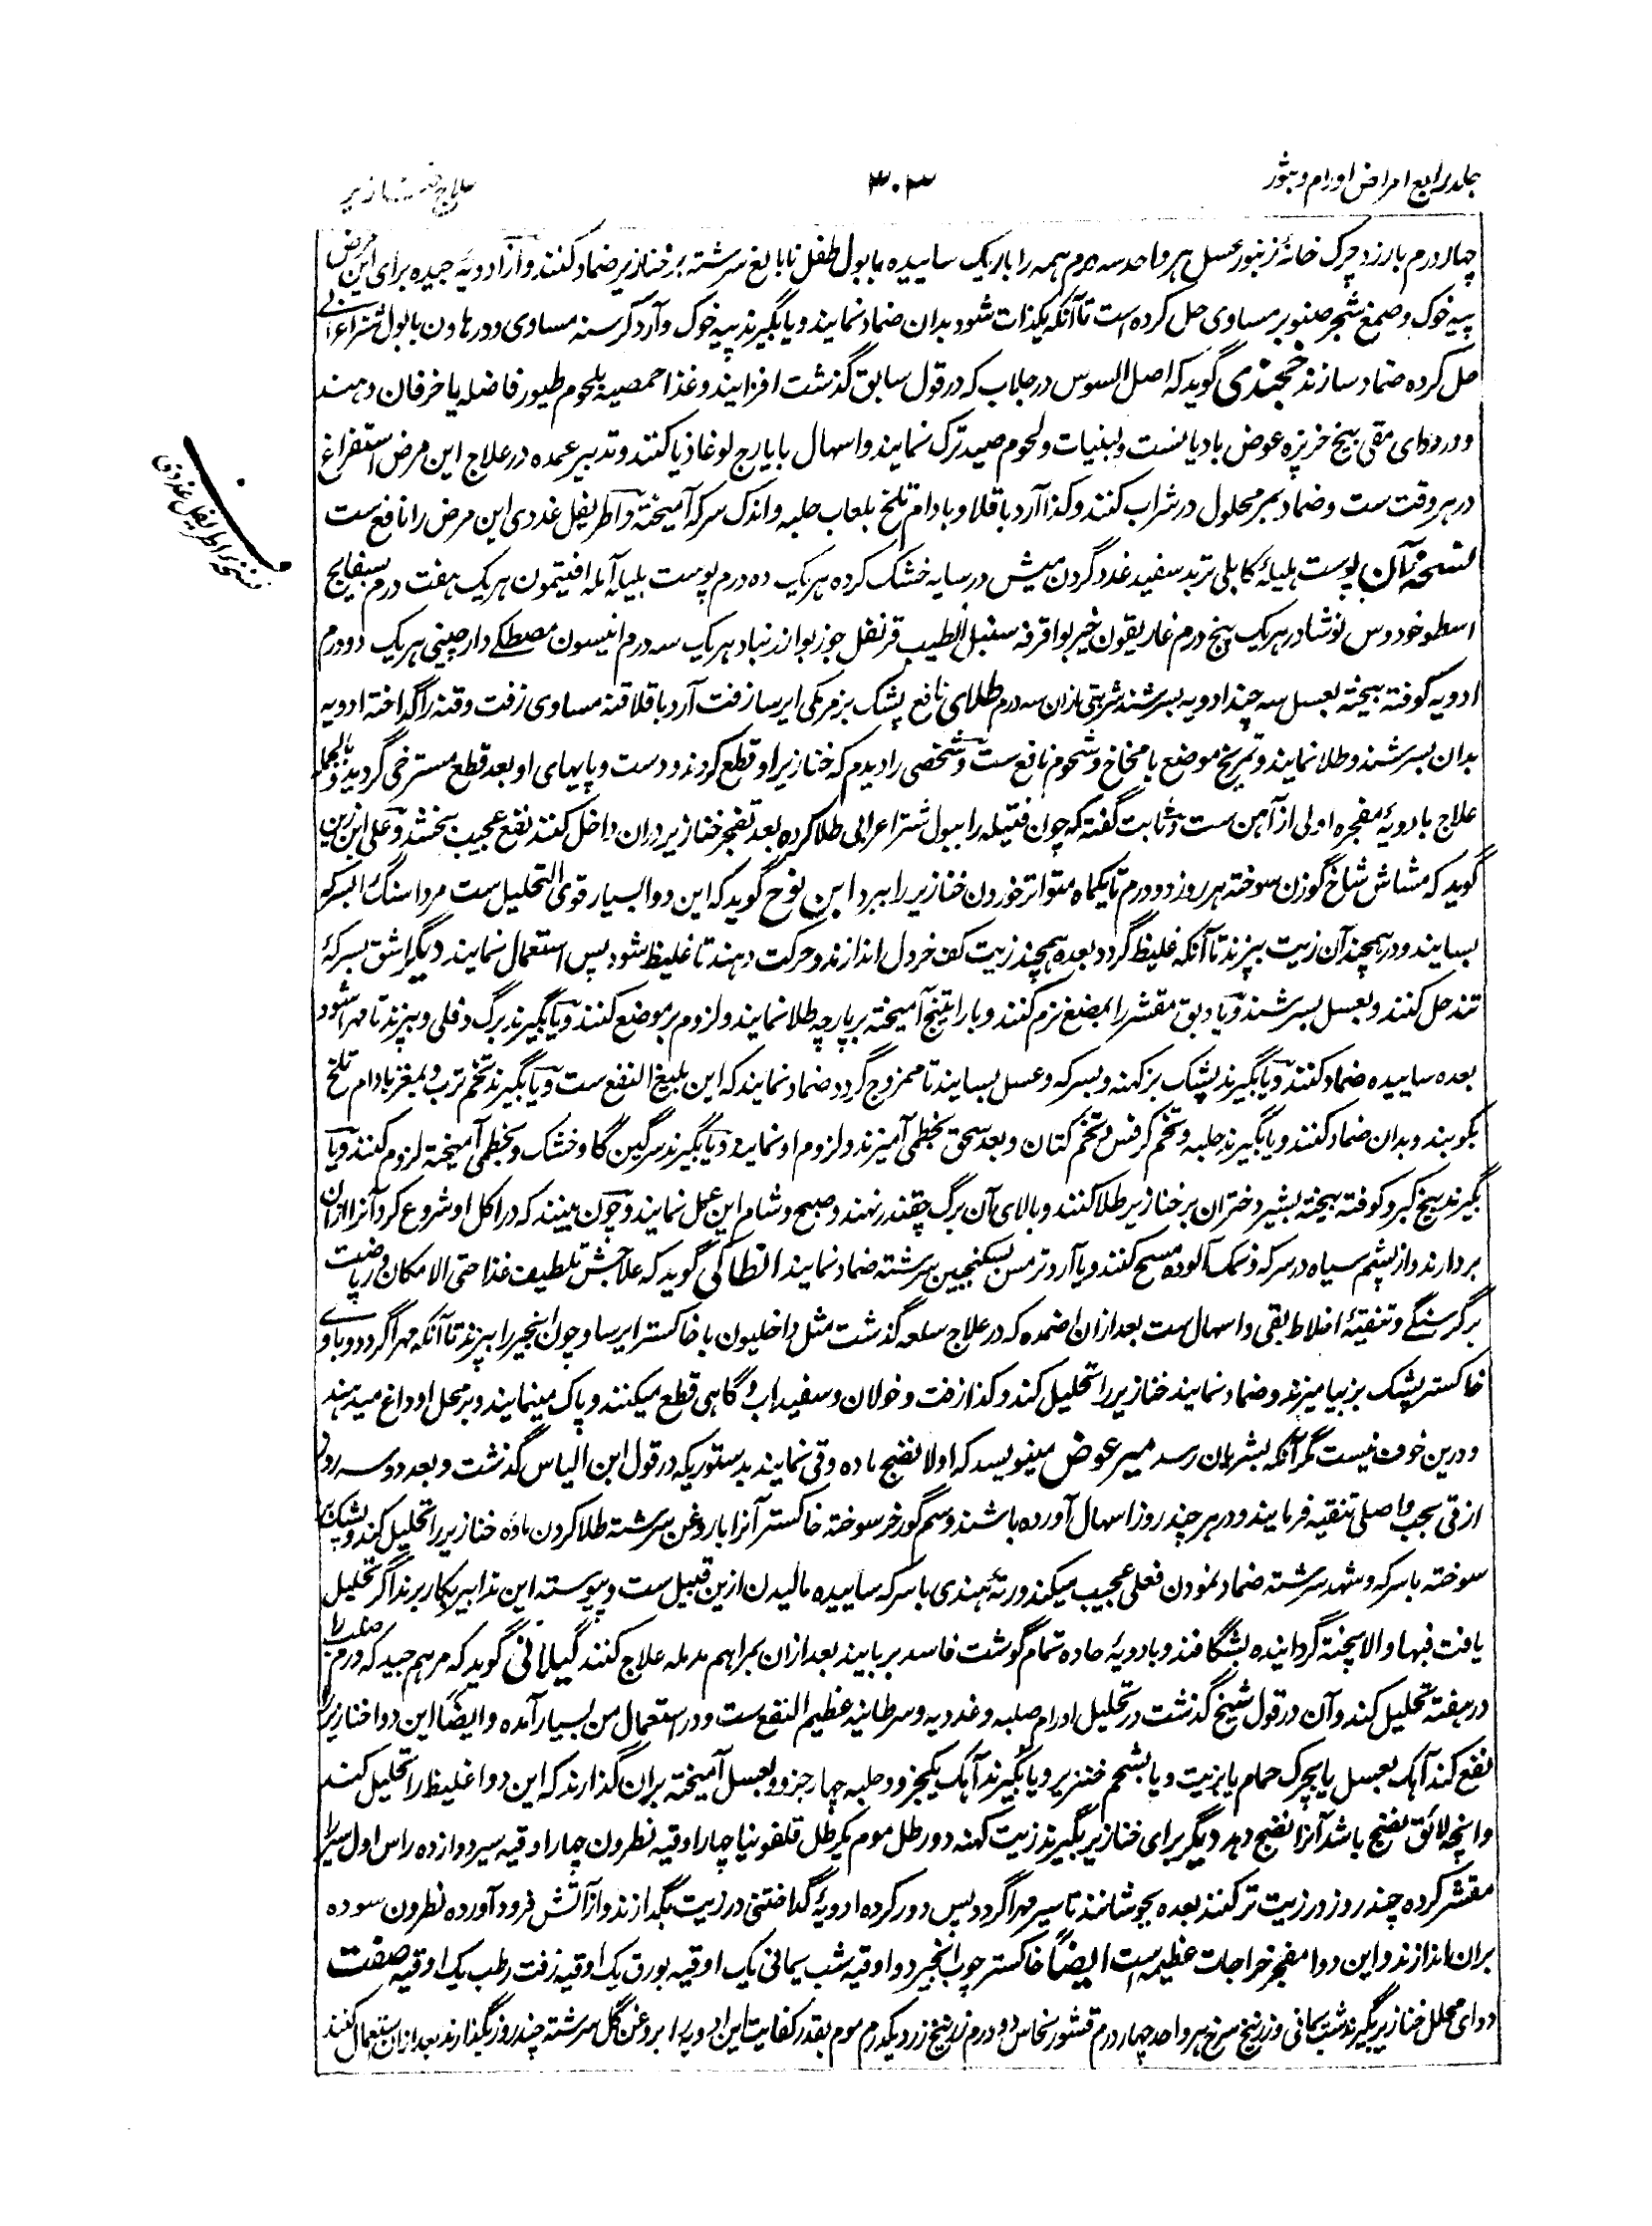 جلد رابع امراض اورام و بثور
۳۰۳
علاج خنازیر
چهار درم بارزد چرک خانهٔ زنبور عسل هر واحد سه درم همه را باریک ساییده با بول طفل نابالغ سرشته بر خنازیر ضماد کنند و از ادویهٔ جیده برای این مرض
پیه خوک و صمغ شجر صنوبر مساوی حل کرده است تا آنکه یکذات شود بدان ضماد نمایند و یا بگیرند پیه خوک و آرد کرسنه مساوی و در هاون با بول شتر اعرابی
حل کرده ضماد سازند خجندی گوید که اصل السوس در جلاب که در قول سابق گذشت افزایند و غذا حمصیه بلحوم طیور فاضله یا خرفان دهند
و در دوای مقی بیخ خربزه عوض بادیانست و لبنیات و لحوم صید ترک نمایند و اسهال بایارج لوغاذیا کنند و تدبیر عمده در علاج این مرض استفراغ
در هر وقت ست و ضماد بمر محلول در شراب کنند و کذا آرد باقلا و بادام تلخ بلعاب حلبه و اندک سرکه آمیخته و اطریفل غددی این مرض را نافع ست
نسخهٔ آن پوست هلیلهٔ کابلی تربد سفید غدد گردن میش در سایه خشک کرده هر یک ده درم پوست بلیله آمله افتیمون هر یک هفت درم بسفایج
اسطوخودوس نوشادر هر یک پنج درم غاریقون خیربوا قرفه سنبل الطیب قرنفل جوزبوا زرنباد هر یک سه درم انیسون مصطکے دارچینی هر یک دو درم
ادویه کوفته بیخته بعسل سه چند ادویه بسرشند شربتی ازان سه درم طلای نافع پشک بز مرمکی ایرسا زفت آرد باقلا قنه مساوی زفت و قنه را گداخته ادویه
بدان بسرشند و طلا نمایند و تمریخ موضع با مخاخ و شحوم نافع ست و شخصی را دیدم که خنازیر او قطع کردند و دست و پایهای او بعد قطع مسترخی گردید و بالجمله
علاج بادویهٔ مفجره اولی از آهن ست و ثابت گفته که چون فتیله را ببول شتر اعرابی طلا کرده بعد تفجر خنازیر دران داخل کنند نفع عجیب بخشد و علی ابن زین
گوید که مشاش شاخ گوزن سوخته هر روز دو درم تا یکماه متواتر خوردن خنازیر را ببرد ابن نوح گوید که این دوا بسیار قوی التحلیل ست مرداسنگ بسرکه
بسایند و در همچند آن زیت بپزند تا آنکه غلیظ گردد بعده همچند زیت کف خردل اندازند و حرکت دهند تا غلیظ شود پس استعمال نمایند دیگر اشق بسرکهٔ
تند حل کنند و بعسل بسرشند و یا دبق مقشر را بمضغ نرم کنند و با راتینج آمیخته بر پارچه طلا نمایند و لزوم بر موضع کنند و یا بگیرند برگ دفلی و بپزند تا مهرا شود
بعده ساییده ضماد کنند و یا بگیرند پشک بز کهنه و بسرکه و عسل بسایند تا ممزوج گردد ضماد نمایند که این بلیغ النفع ست و یا بگیرند تخم ترب و بمغز بادام تلخ
بکوبند و بدان ضماد کنند و یا بگیرند حلبه و تخم کرفس و تخم کتان و بعد سحق بخطمی آمیزند و لزوم او نمایند و یا بگیرند سرگین گاو خشک و بخطمی آمیخته لزوم کنند و یا
بگیرند بیخ کبر و کوفته بیخته بشیر دختران بر خنازیر طلا کنند و بالای آن برگ چقندر نهند و صبح و شام این عمل نمایند و چون بینند که در اکل او شروع کرد آنرا ازان
بردارند و از پشم سیاه در سرکه و نمک آلوده مسح کنند و یا آرد ترمس بسکنجبین سرشته ضماد نمایند انطاکی گوید که علاجش تلطیف غذا حتی الامکان و ریاضت
بر گرسنگے و تنقیهٔ اخلاط بقی و اسهال ست بعد ازان اضمده که در علاج سلعه گذشت مثل داخلیون با خاکستر ایرسا و چون انجیر را بپزند تا آنکه مهرا گردد و باوے
خاکستر پشک بز بیامیزند و ضماد نمایند خنازیر را تحلیل کند و کذا زفت و خولان و سفیداب و گاهی قطع میکنند و پاک مینمایند و بر محل او داغ میدهند
و درین خوف نیست مگر آنکه بشریان رسد میر عوض مینویسد که اولا نضج ماده وقی نمایند بدستوریکه در قول ابن الیاس گذشت و بعد دو سه روز
از قی بحب واصلی تنقیه فرمایند و در هر چند روز اسهال آورده باشند و سم گورخر سوخته خاکستر آنرا با روغن سرشته طلا کردن مادهٔ خنازیر را تحلیل کند و پشک بز
سوخته با سرکه و شهد سرشته ضماد نمودن فعلی عجیب میکند و رتهٔ هندی با سرکه ساییده مالیدن ازین قبیل ست و پیوسته این تدابیر بکار برند اگر تحلیل
یافت فبها و الا پخته گردانیده بشگافند و بادویهٔ حاده تمام گوشت فاسد بربایند بعد ازان بمراهم مدمله علاج کنند گیلانی گوید که مرهم جید که ورم صلب را
در هفته تحلیل کند و آن در قول شیخ گذشت در تحلیل اورام صلبه و غددیه و سرطانیه عظیم النفع ست و در استعمال من بسیار آمده و ایضًا این دوا خنازیر را
نفع کند آهک بعسل یا بچرک حمام یا بزیت و یا بشحم خنزیر و یا بگیرند آهک یکجزو و حلبه چهار جزو و بعسل آمیخته بران گذارند که این دوا غلیظ را تحلیل کند
و انچه لائق نضج باشد آنرا نضج دهد دیگر برای خنازیر بگیرند زیت کهنه دو رطل موم یکرطل قلفونیا چهار اوقیه نطرون چهار اوقیه سیر دوازده راس اول سیر را
مقشر کرده چند روز در زیت تر کنند بعده بجوشانند تا سیر مهرا گردد پس دور کرده ادویهٔ گداختنی در زیت بگدازند و از آتش فرود آورده نطرون سوده
بران اندازند و این دوا مفجر خراجات عظیمه است ایضًا خاکستر چوب انجیر دو اوقیه شب یمانی یک اوقیه بورق یک اوقیه زفت رطب یک اوقیه صفت
دوای محلل خنازیر بگیرند شب یمانی و زرنیخ سرخ هر واحد چهار درم قشور نحاس دو درم زرنیخ زرد یکدرم موم بقدر کفایت این ادویه را بروغن گل سرشته چند روز بگذارند بعد ازان استعمال کنند
نسخه اطریفل غددی